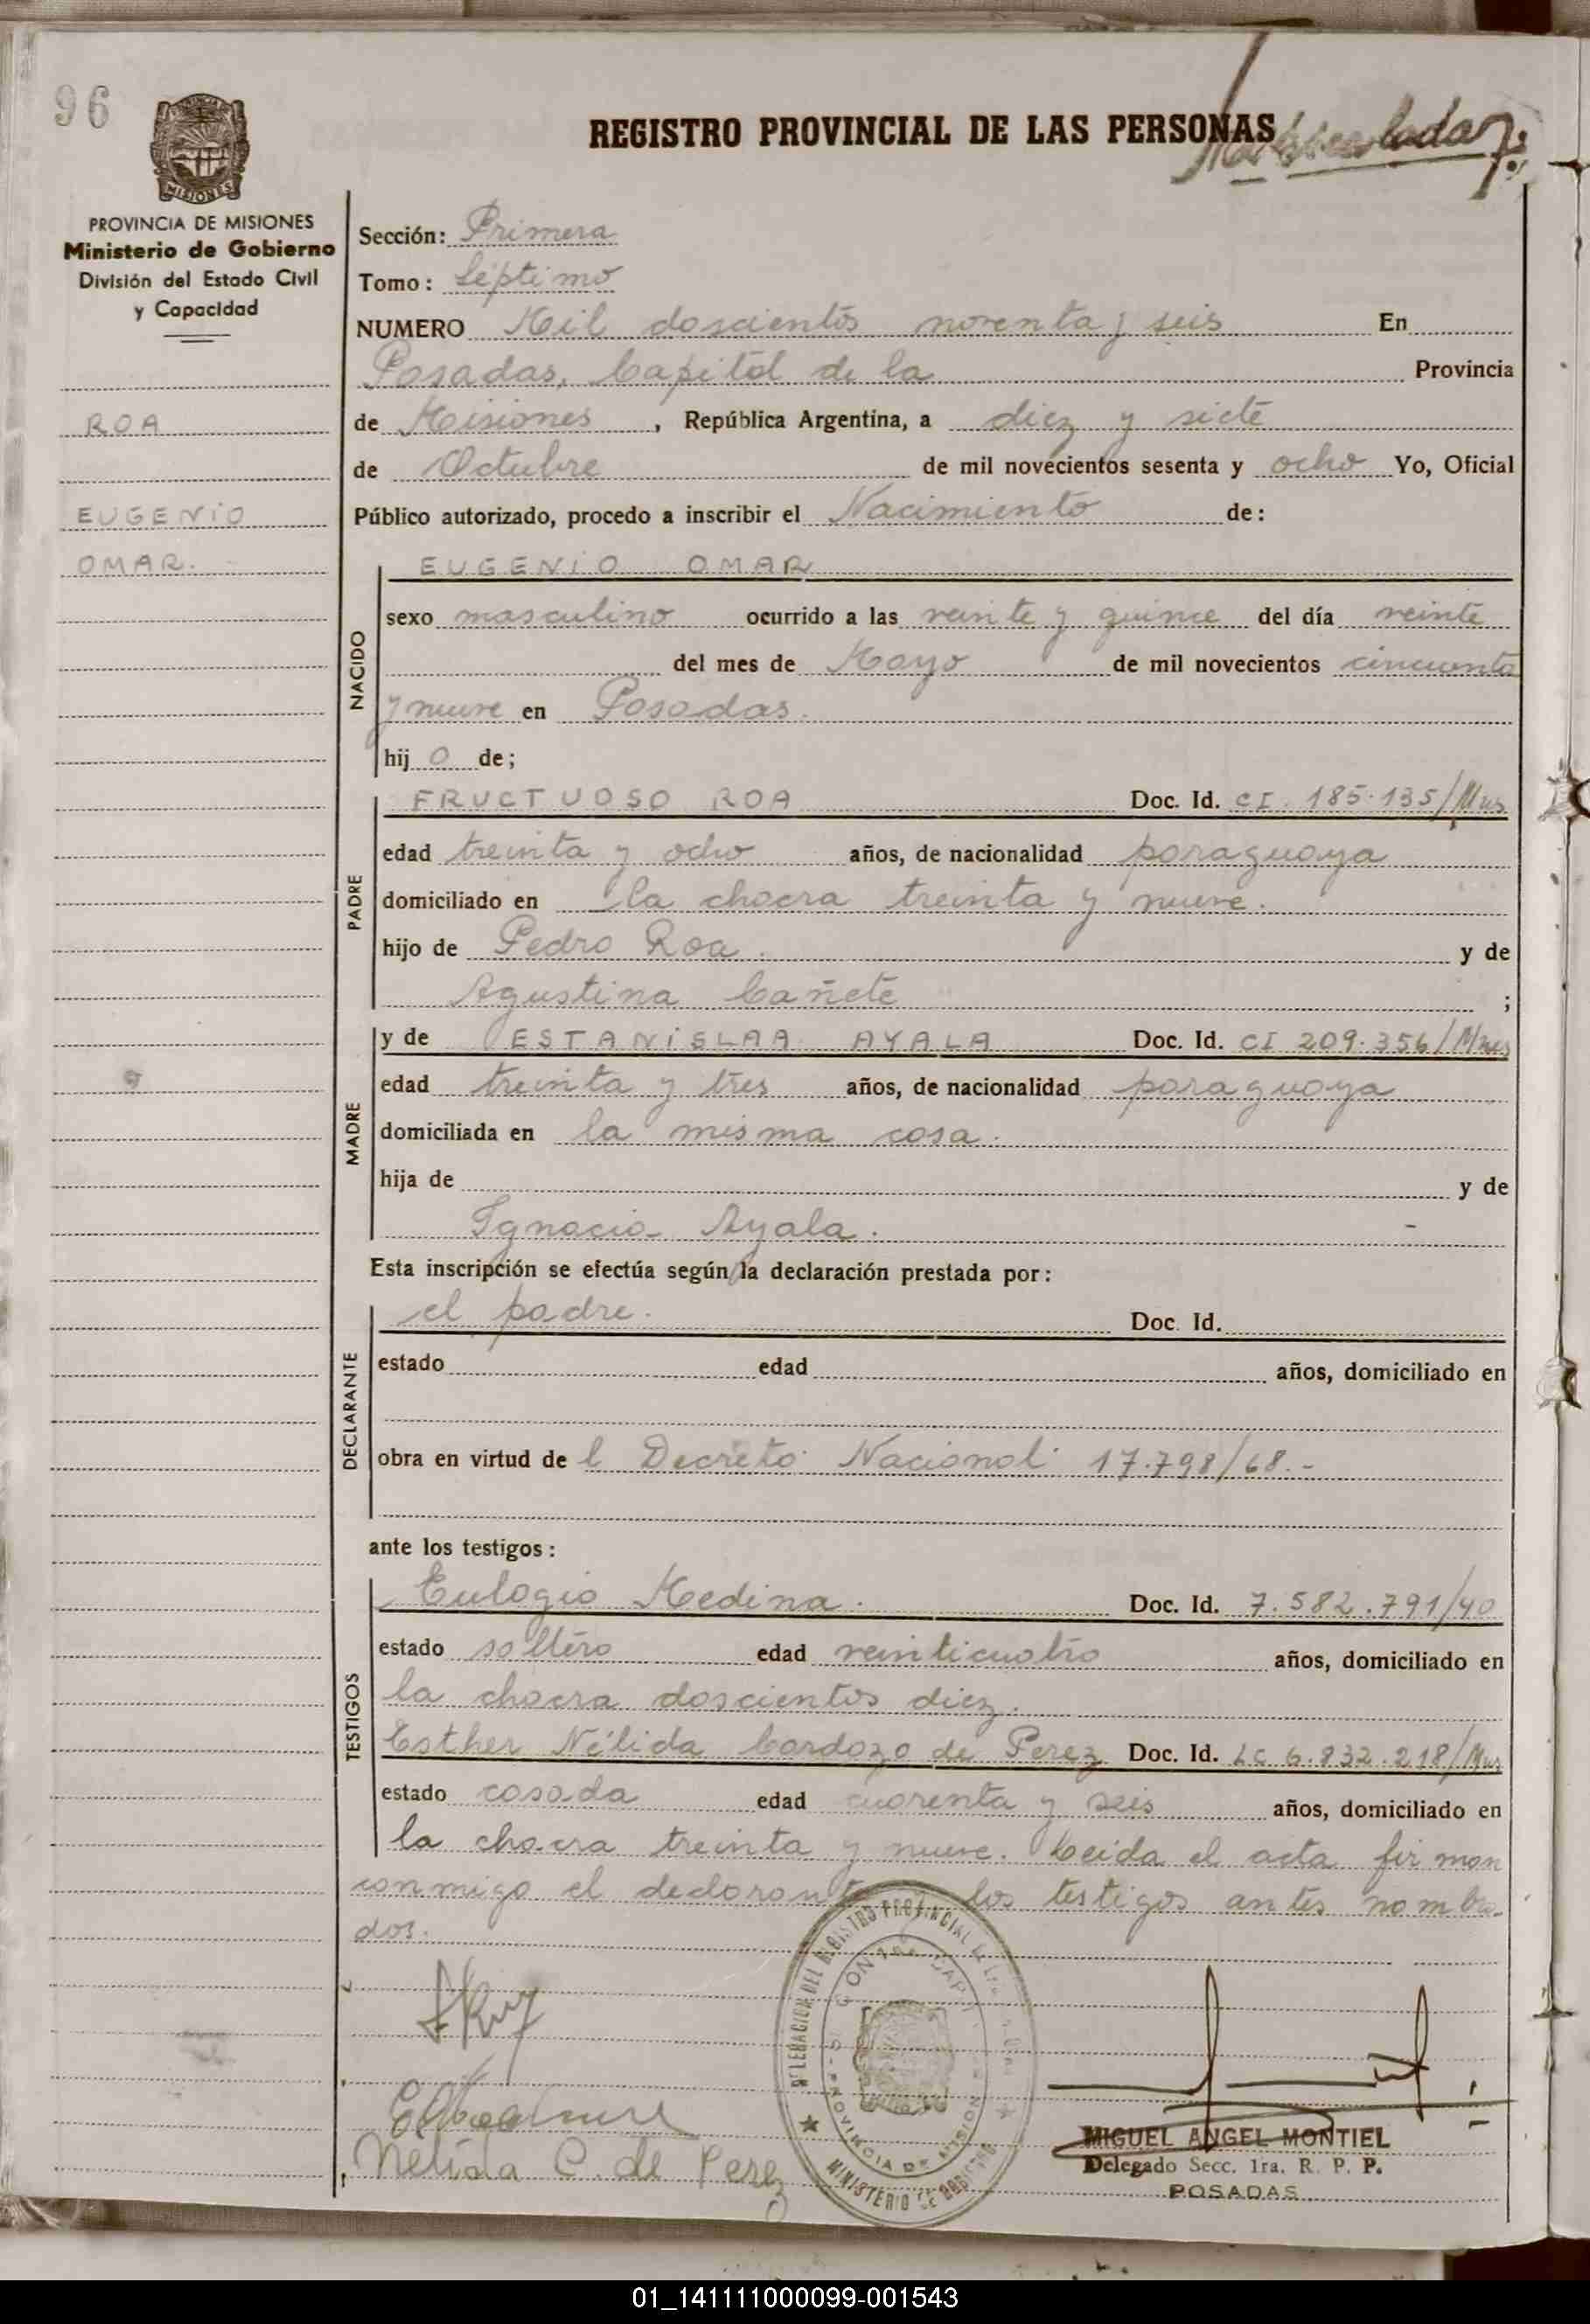 96
REGISTRO PROVINCIAL DE LAS PERSONAS
PROVINCIA DE MISIONES
Ministerio de Gobierno
División del Estado Civil
y Capacidad
MISIONES
ROA
EUGENIO
OMAR.
Sección: Primera
Tomo: Séptimo
NUMERO Mil doscientos noventa y seis En
Posadas, Capital de la Provincia
de Misiones, República Argentina, a diez y siete
de Octubre de mil novecientos sesenta y ocho Yo, Oficial
Público autorizado, procedo a inscribir el Nacimiento de:
NACIDO
EUGENIO OMAR
sexo masculino ocurrido a las veinte y quince del día veinte
del mes de Mayo de mil novecientos cincuenta
y nueve en Posadas.
hijo de;
PADRE
FRUCTUOSO ROA Doc. Id. CI. 185.135/Mns
edad treinta y ocho años, de nacionalidad paraguaya
domiciliado en la chacra treinta y nueve.
hijo de Pedro Roa. y de
Agustina Cañete ;
MADRE
y de ESTANISLAA AYALA Doc. Id. CI 209.356/Mnes
edad treinta y tres años, de nacionalidad paraguaya
domiciliada en la misma casa.
hija de y de
Ignacia Ayala. -
Esta inscripción se efectúa según la declaración prestada por:
DECLARANTE
el padre. Doc. Id.
estado edad años, domiciliado en
obra en virtud de l Decreto Nacional 17.798/68.-
ante los testigos:
TESTIGOS
Eulogio Medina. Doc. Id. 7.582.791/40
estado soltero edad veinticuatro años, domiciliado en
la chacra doscientos diez.
Esther Nélida Cardozo de Perez Doc. Id. LC 6.832.218/Mns
estado casada edad cuarenta y seis años, domiciliado en
la chacra treinta y nueve. Leida el acta firman
conmigo el declarante los testigos antes nombra-
dos.
DELEGACION DEL REGISTRO PROVINCIAL
PROVINCIA DE MISIONES
MINISTERIO DE GOBIERNO
Nelida C. de Perez
MIGUEL ANGEL MONTIEL
Delegado Secc. 1ra. R. P. P.
POSADAS
01_141111000099-001543